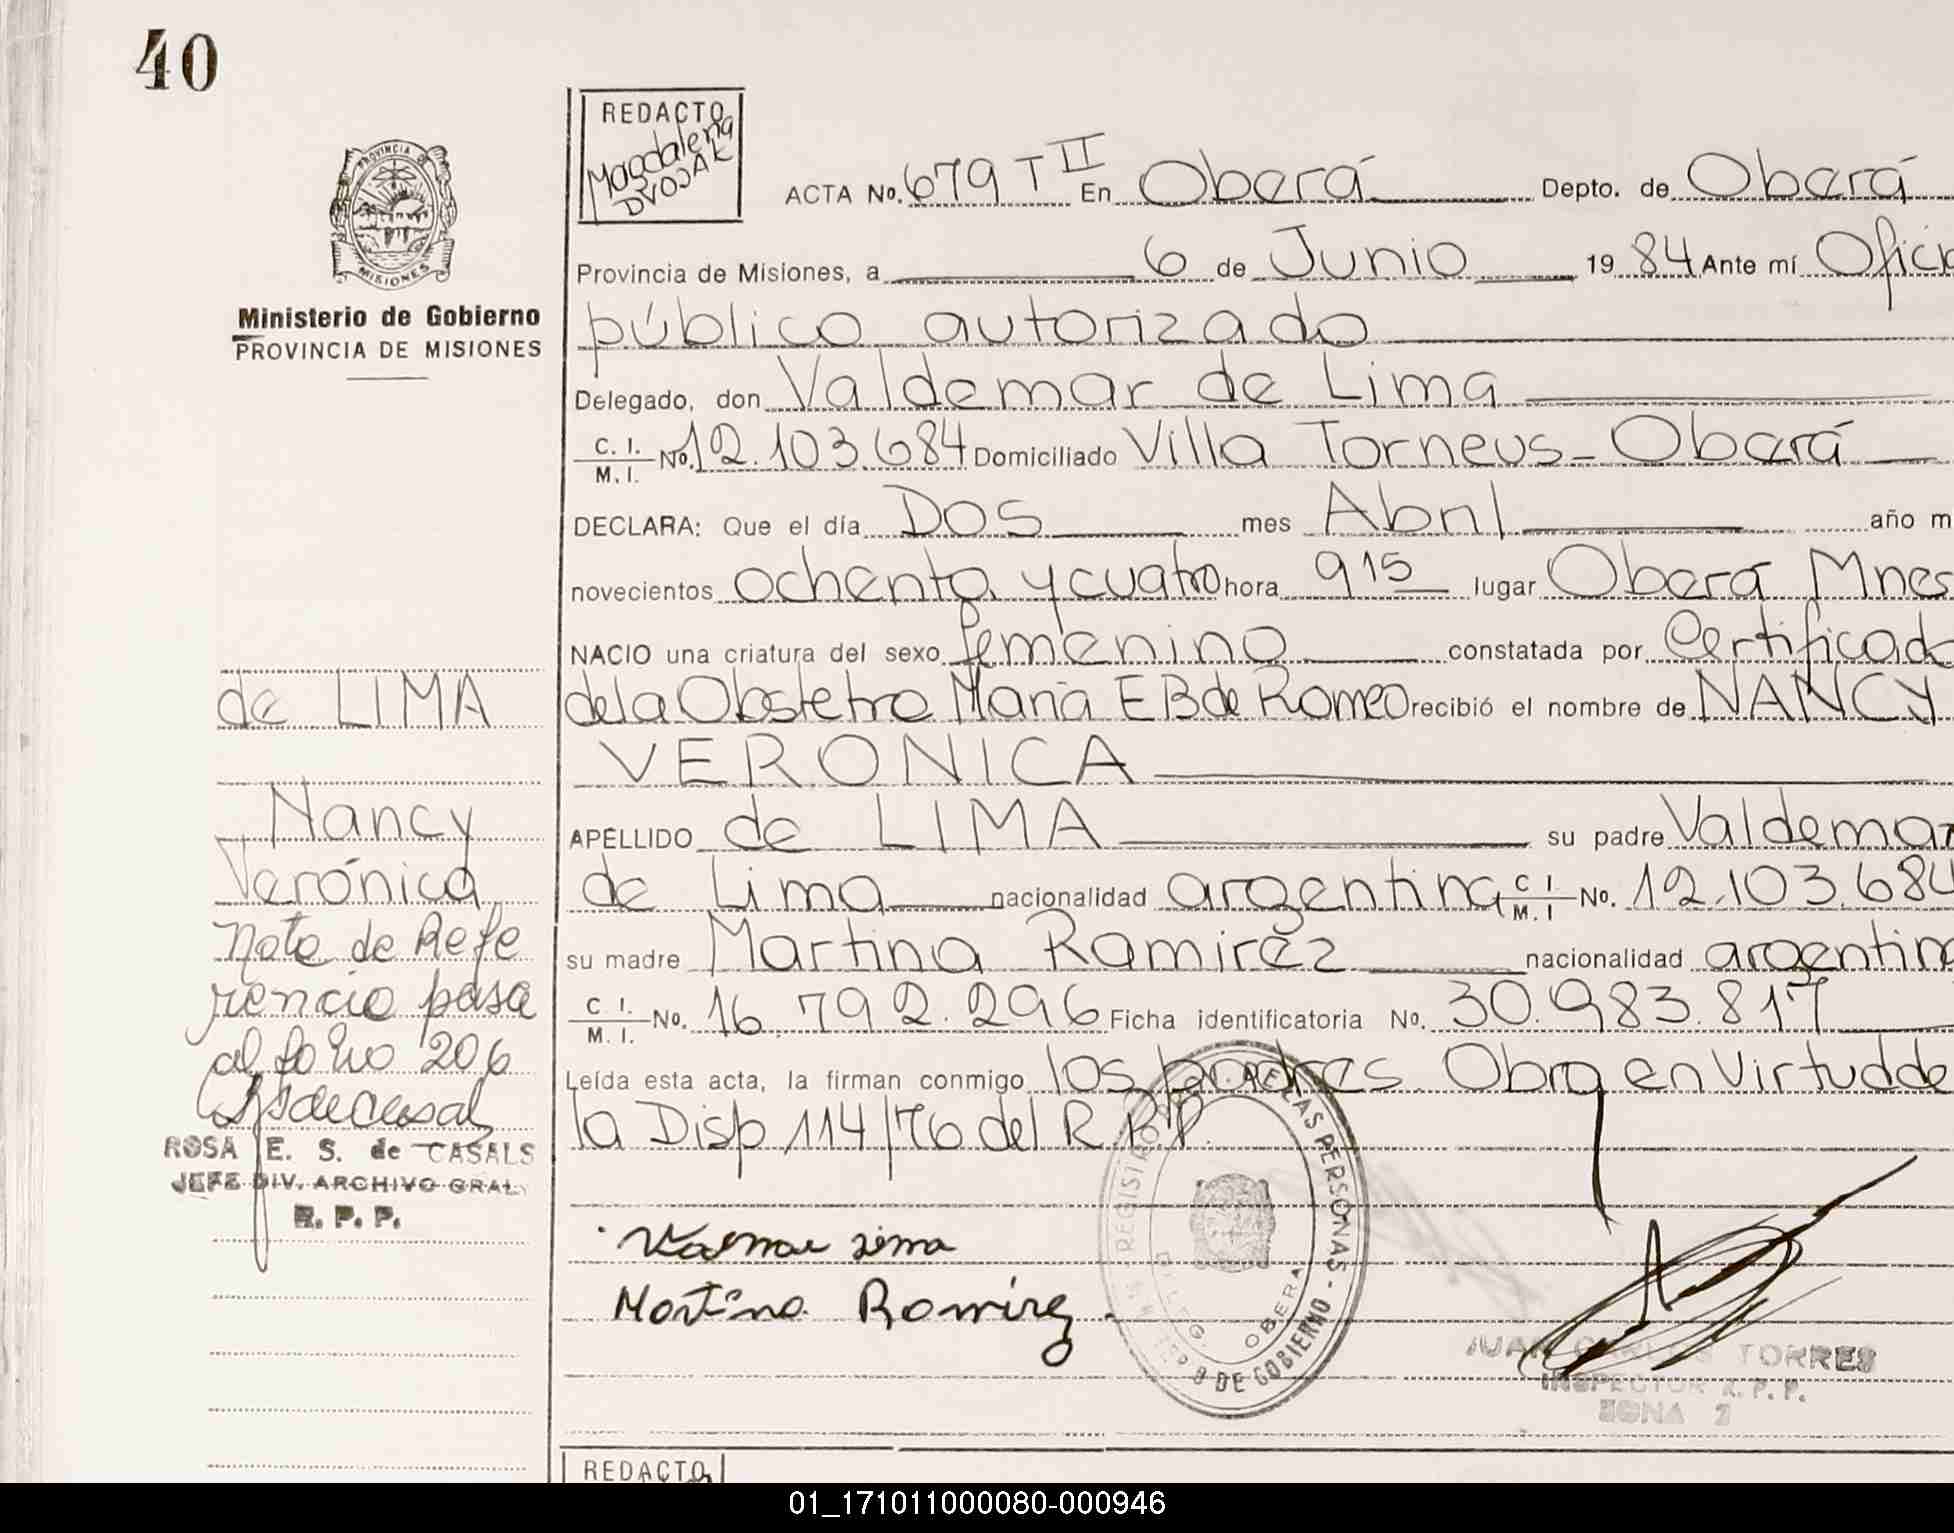 40
PROVINCIA DE
MISIONES
Ministerio de Gobierno
PROVINCIA DE MISIONES
REDACTO
Magdalena
DVOJAK
ACTA No. 679 T II En Oberá Depto. de Oberá
Provincia de Misiones, a 6 de Junio 1984 Ante mí Oficia
público autorizado
Delegado, don Valdemar de Lima
C. I. M. I. No. 12.103.684 Domiciliado Villa Torneus - Oberá
DECLARA: Que el día Dos mes Abril año m
novecientos ochenta y cuatro hora 9 15 lugar Oberá Mnes
NACIO una criatura del sexo femenino constatada por Certificad
de la Obstetra María E B de Romeo recibió el nombre de NANCY
VERONICA
APELLIDO de LIMA su padre Valdemar
de Lima nacionalidad argentina C I M. I No. 12.103.684
su madre Martina Ramirez nacionalidad argentin
C. I. M. I. No. 16.792.296 Ficha identificatoria No. 30.983.817
Leída esta acta, la firman conmigo los padres Obra en Virtud de
la Disp 114/76 del R.P.P.
de LIMA
Nancy
Verónica
Nota de Refe
rencia pasa
al folio 206
ROSA E. S. de CASALS
JEFE DIV. ARCHIVO GRAL.
R. P. P.
Lima
Martina Ramirez
REGISTRO DE LAS PERSONAS - DE GOBIERNO
OBERA
JUAN CARLOS TORRES
INSPECTOR R. P. P.
ZONA 2
REDACTO
01_171011000080-000946